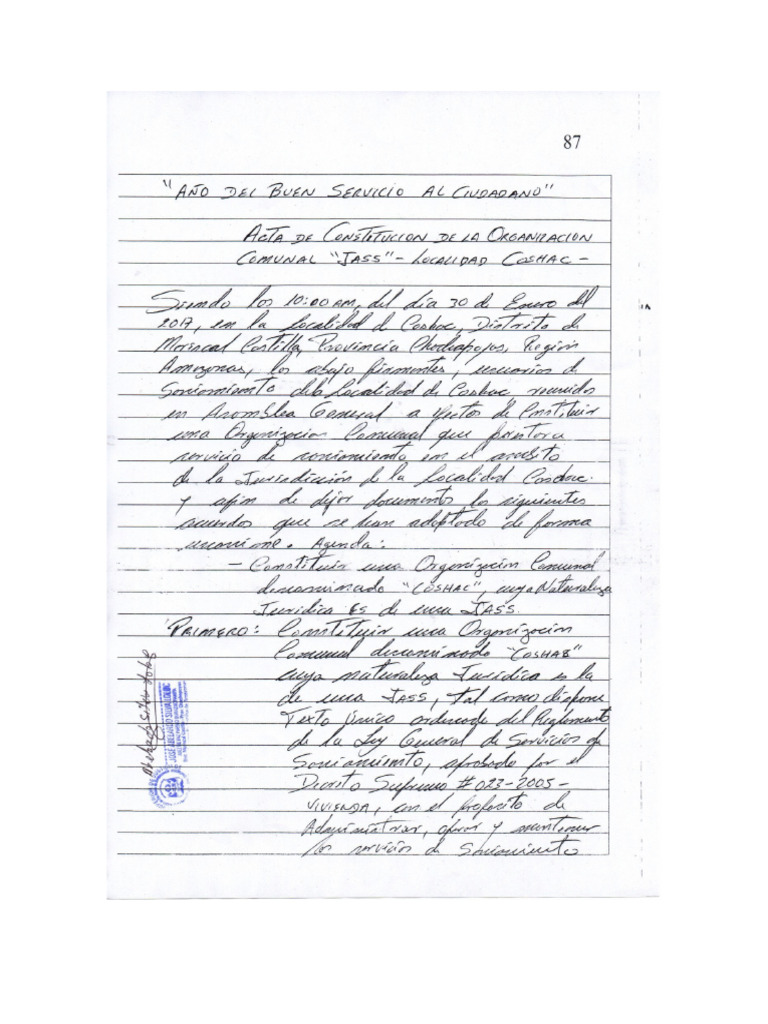 87
"AÑO DEL BUEN SERVICIO AL CIUDADANO"
ACTA DE CONSTITUCION DE LA ORGANIZACION
COMUNAL "JASS" - LOCALIDAD COSHAC -
Siendo los 10:00 AM, del día 30 de Enero del
2017, en la Localidad d Coshac, Distrito de
Mariscal Castilla, Provincia Chachapoyas, Región
Amazonas, los abajo firmantes, usuarios de
Saniamiento de la Localidad de Coshac, reunidos
en Asamblea General a efectos de Constituir
una Organizacion Comunal que prestara
servicio de saniamiento en el ambito
de la Jurisdicción de la Localidad Coshac.
y afin de dejar documento los siguientes
acuerdos que se han adoptado de forma
unanime. Agenda:
- Constituir una Organizacion Comunal
denominado "COSHAC", cuya Naturaleza
Juridica es de una JASS.
PRIMERO: Constituir una Organizacion
Comunal denominado "COSHAB"
cuya naturaleza Juridica es la
de una JASS, tal como dispone
Texto único ordenado del Reglamento
de la Ley General de Servicios de
Saniamiento, aprobado por el
Decreto Supremo # 023-2005-
VIVIENDA, con el proposito de
Administrar, operar y mantener
los servicios de Saniamiento